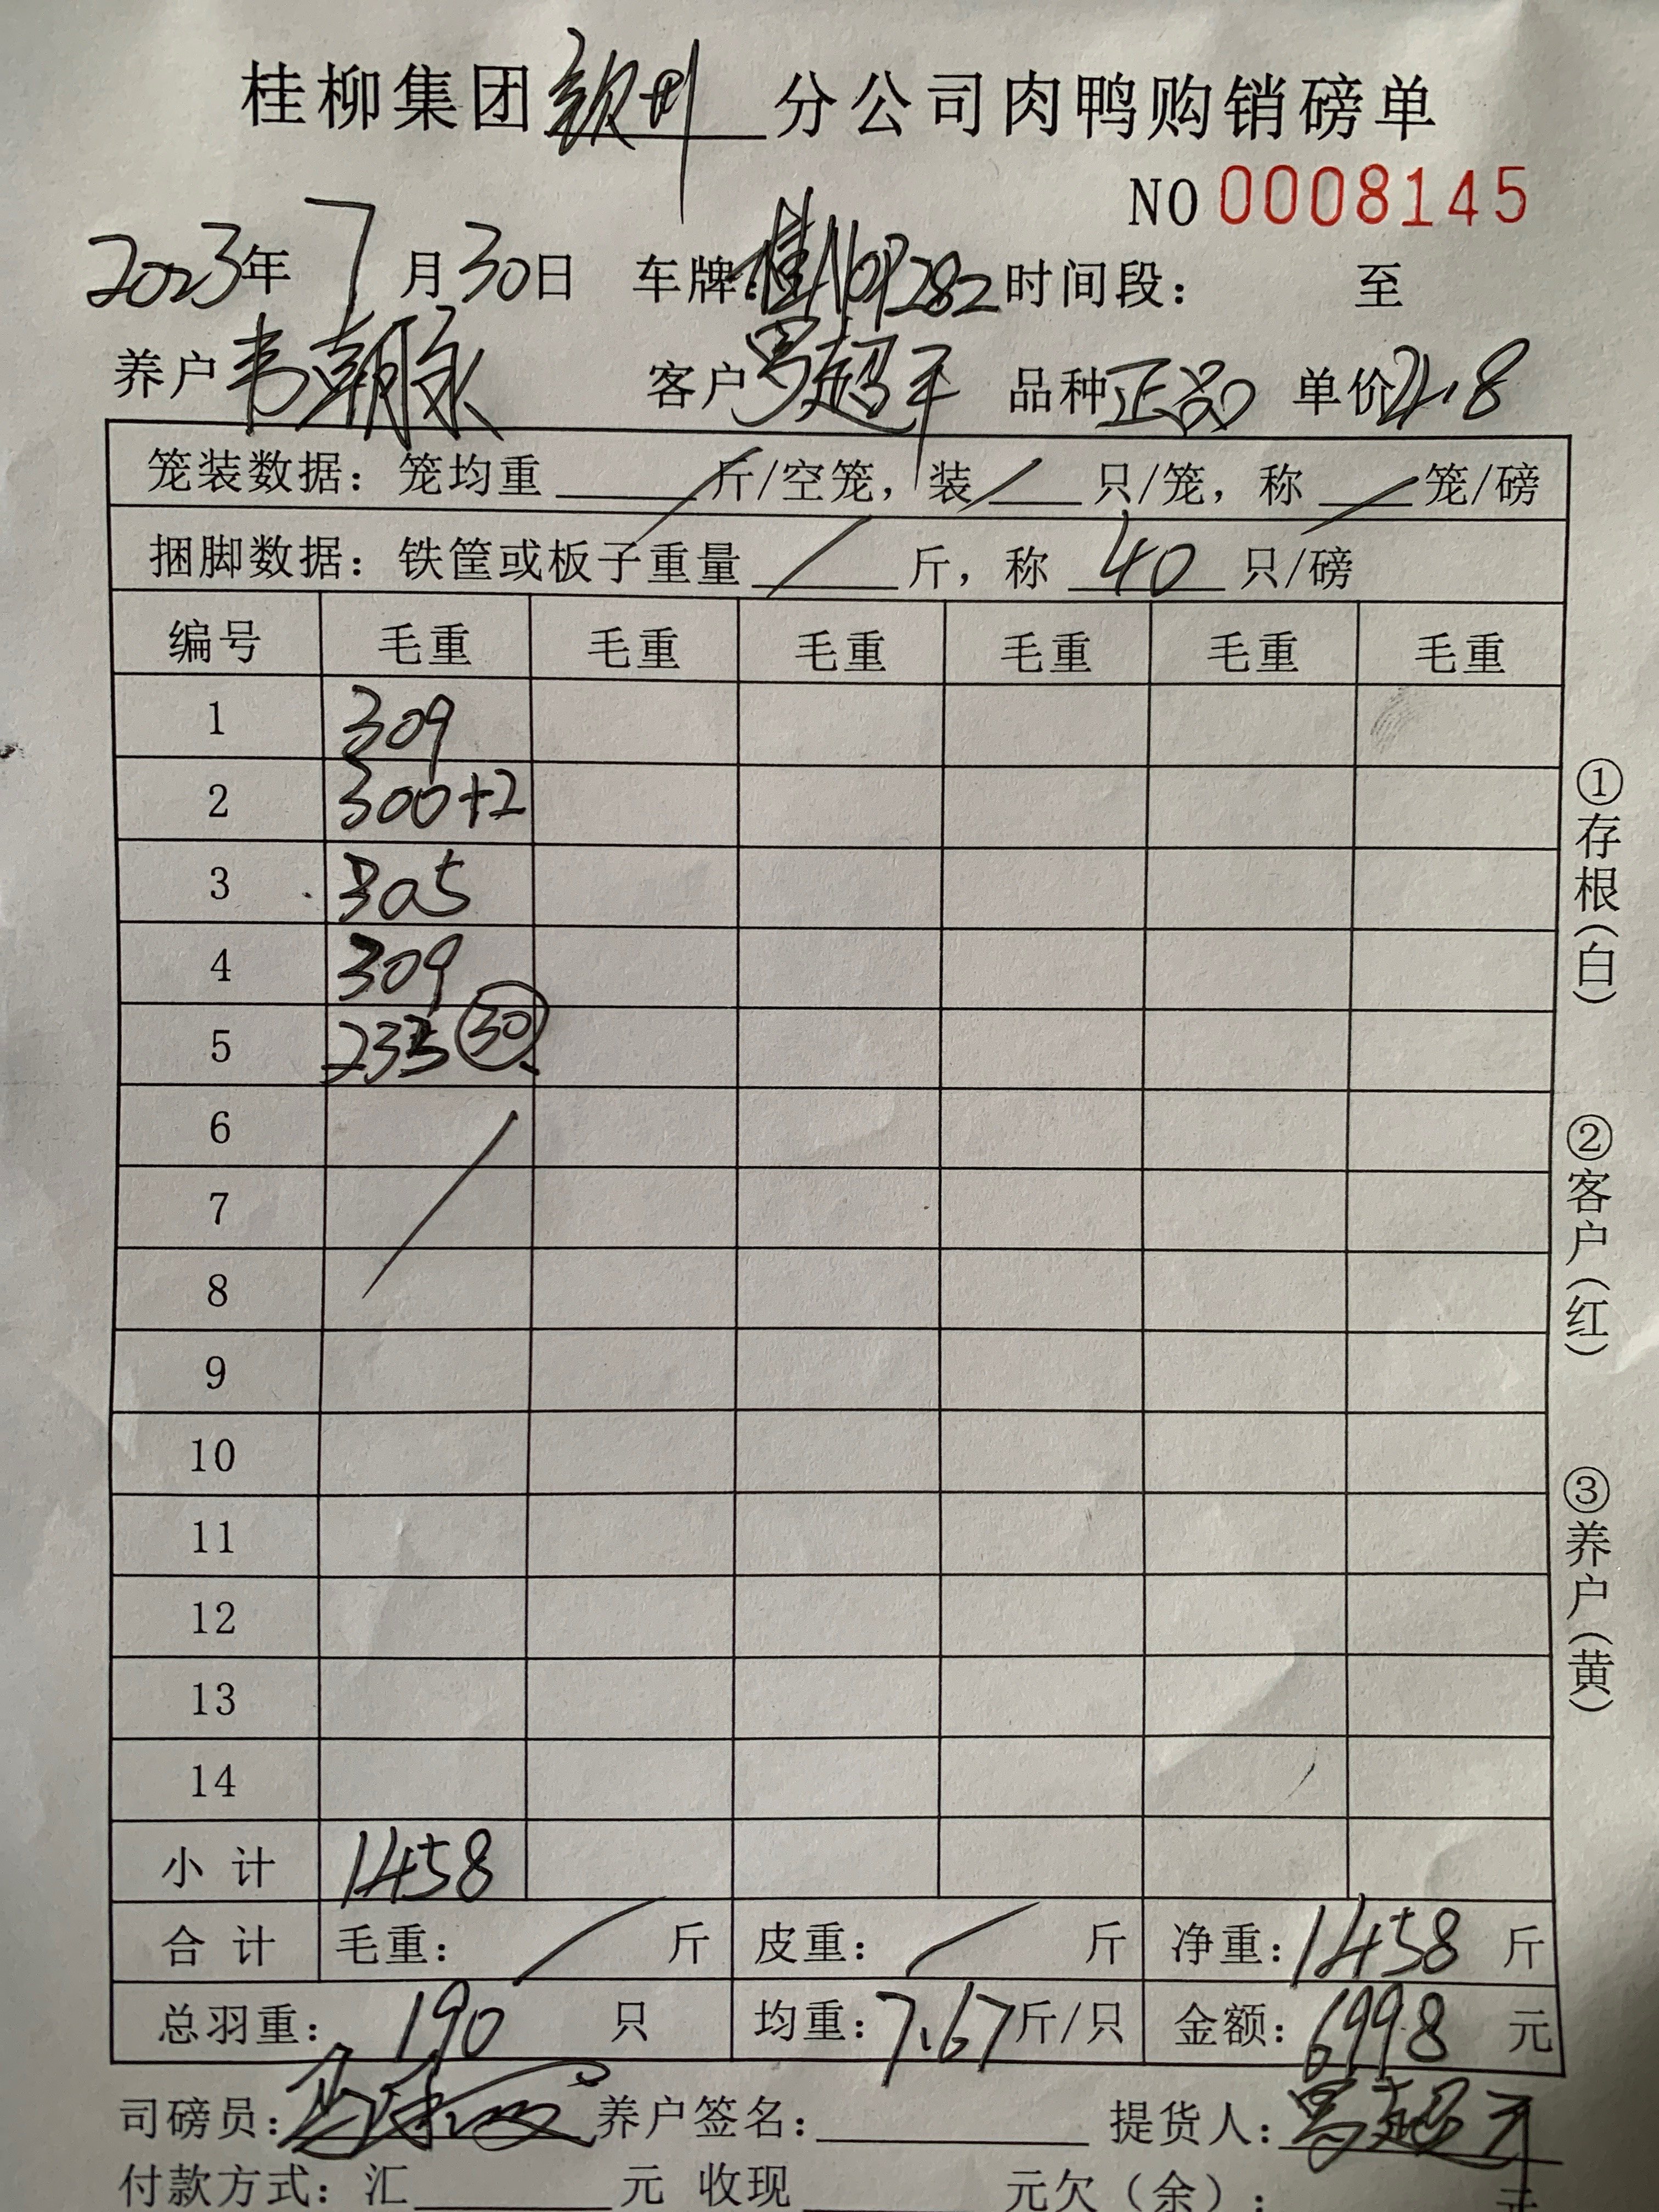 桂柳集团钦州分公司肉鸭购销磅单
NO 0008145
2023年 7月30日 车牌:桂N09282 时间段: 至
养户 韦朝永 客户 罗超平 品种 正品 单价 4.8
笼装数据: 笼均重 斤/空笼, 装 只/笼, 称 笼/磅
捆脚数据: 铁筐或板子重量 斤, 称 40 只/磅
编号 毛重 毛重 毛重 毛重 毛重 毛重
1 309
2 300+2
3 305
4 309
5 233 30
6
7
8
9
10
11
12
13
14
小计 1458
合计 毛重: 斤 皮重: 斤 净重: 1458 斤
总羽重: 190 只 均重: 7.67 斤/只 金额: 6998 元
司磅员: 养户签名: 提货人: 罗超平
付款方式: 汇 元 收现 元欠(余): 元
①存根(白)
②客户(红)
③养户(黄)